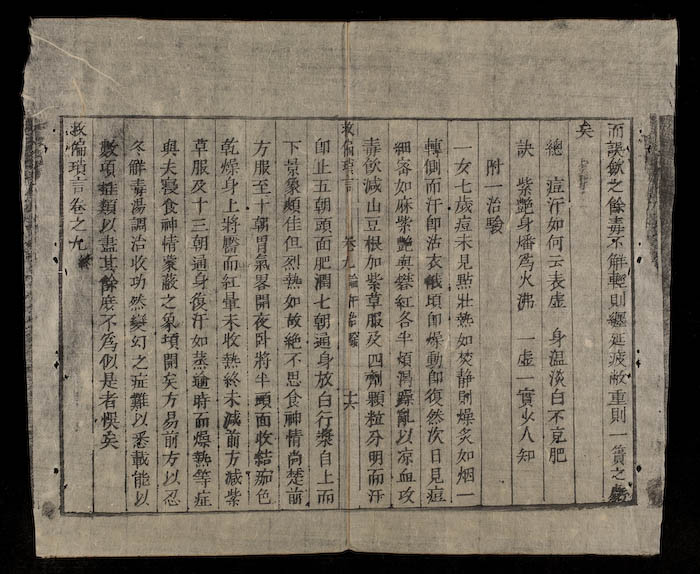 而誤飲之餘毒不解輕則纏延疲敝重則一簣之虧
矣
總 痘汗如何云表虛 身溫淡白不克肥
訣 紫艷身燔為火沸 一虛一實少人知
附一治驗
一女七歲痘未見點壯熱如焚靜則燥炙如烟一
轉側而汗即沾衣俄頃即燥動即復然次日見痘
細密如麻紫艷與
紅各半煩渴躁亂以凉血攻
毒飲減山豆根加紫草服及四劑顆粒分明而汗
救偏瑣言 卷九 論汗治驗 十六
即止五朝頭面肥潤七朝通身放白行漿自上而
下景象頗佳但烈熱如故絶不思食神情尚楚前
方服至十朝胃氣畧開夜卧將半頭面收結茄色
乾燥身上將靨而紅暈未收熱終未減前方減紫
草服及十三朝通身復汗如蒸逾時而燥熱等症
與夫寢食神情蒙蔽之象頃開矣方易前方以忍
冬解毒湯調治收功然變幻之症難以悉載能以
數項推類以盡其餘庶不為似是者悞矣
救偏瑣言卷之九終